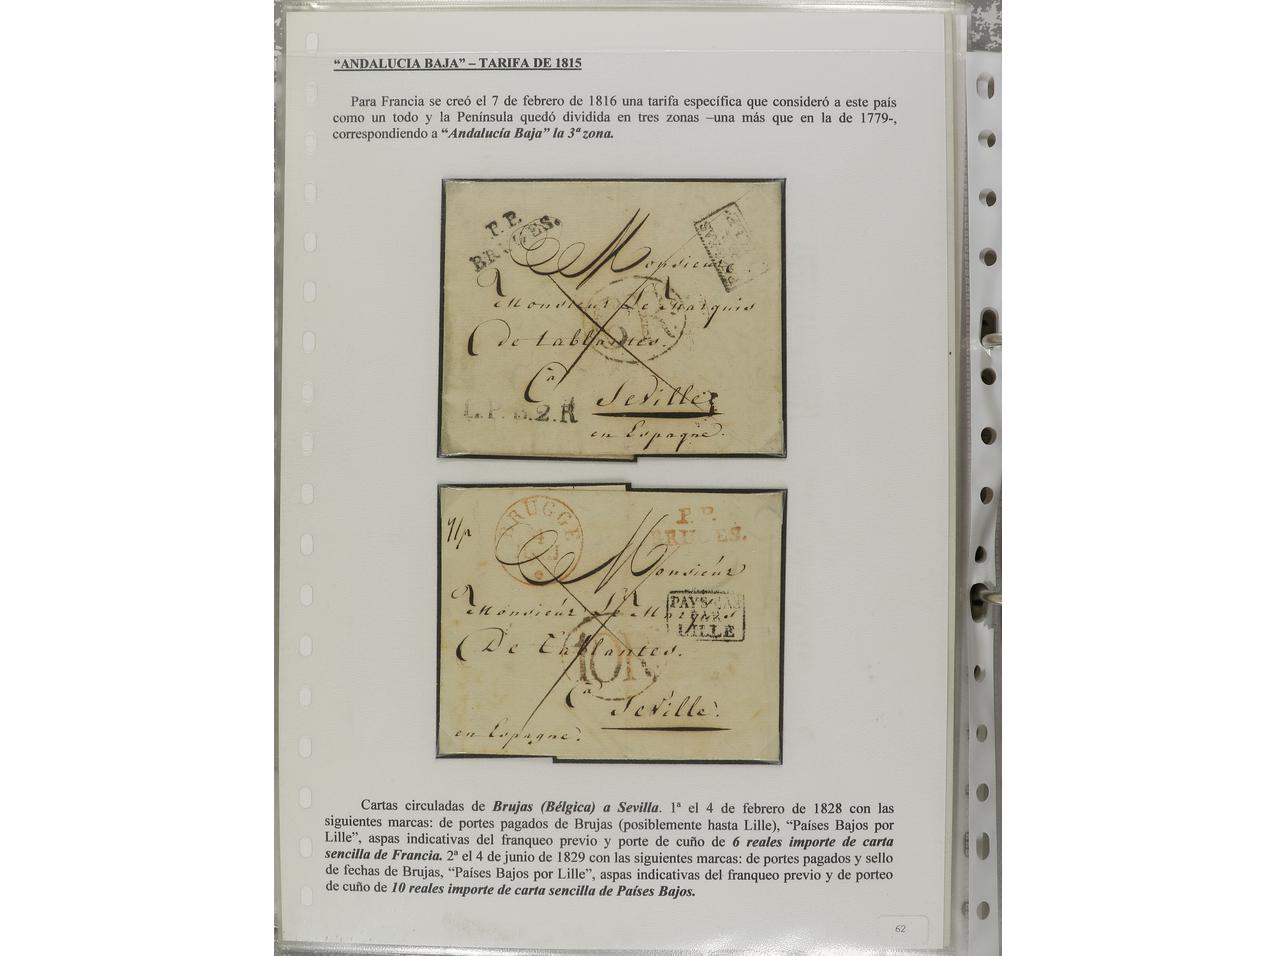 “ANDALUCIA BAJA” – TARIFA DE 1815
Para Francia se creó el 7 de febrero de 1816 una tarifa específica que consideró a este país
como un todo y la Península quedó dividida en tres zonas –una más que en la de 1779-,
correspondiendo a “Andalucía Baja” la 3ª zona.
P.P.
BRUGES.
Monsieur
Monsieur Le Marquis
de tablantes.
a
Seville
en Espagne.
L.P.B.2.R
BRUGGE
4
P.P.
BRUGES.
Monsieur
Monsieur Le Marquis
PAYS-BAS
PAR
LILLE
De Tablantes.
10R
a
Seville.
en Espagne.
Cartas circuladas de Brujas (Bélgica) a Sevilla. 1ª el 4 de febrero de 1828 con las
siguientes marcas: de portes pagados de Brujas (posiblemente hasta Lille), “Países Bajos por
Lille”, aspas indicativas del franqueo previo y porte de cuño de 6 reales importe de carta
sencilla de Francia. 2ª el 4 de junio de 1829 con las siguientes marcas: de portes pagados y sello
de fechas de Brujas, “Países Bajos por Lille”, aspas indicativas del franqueo previo y de porteo
de cuño de 10 reales importe de carta sencilla de Países Bajos.
62